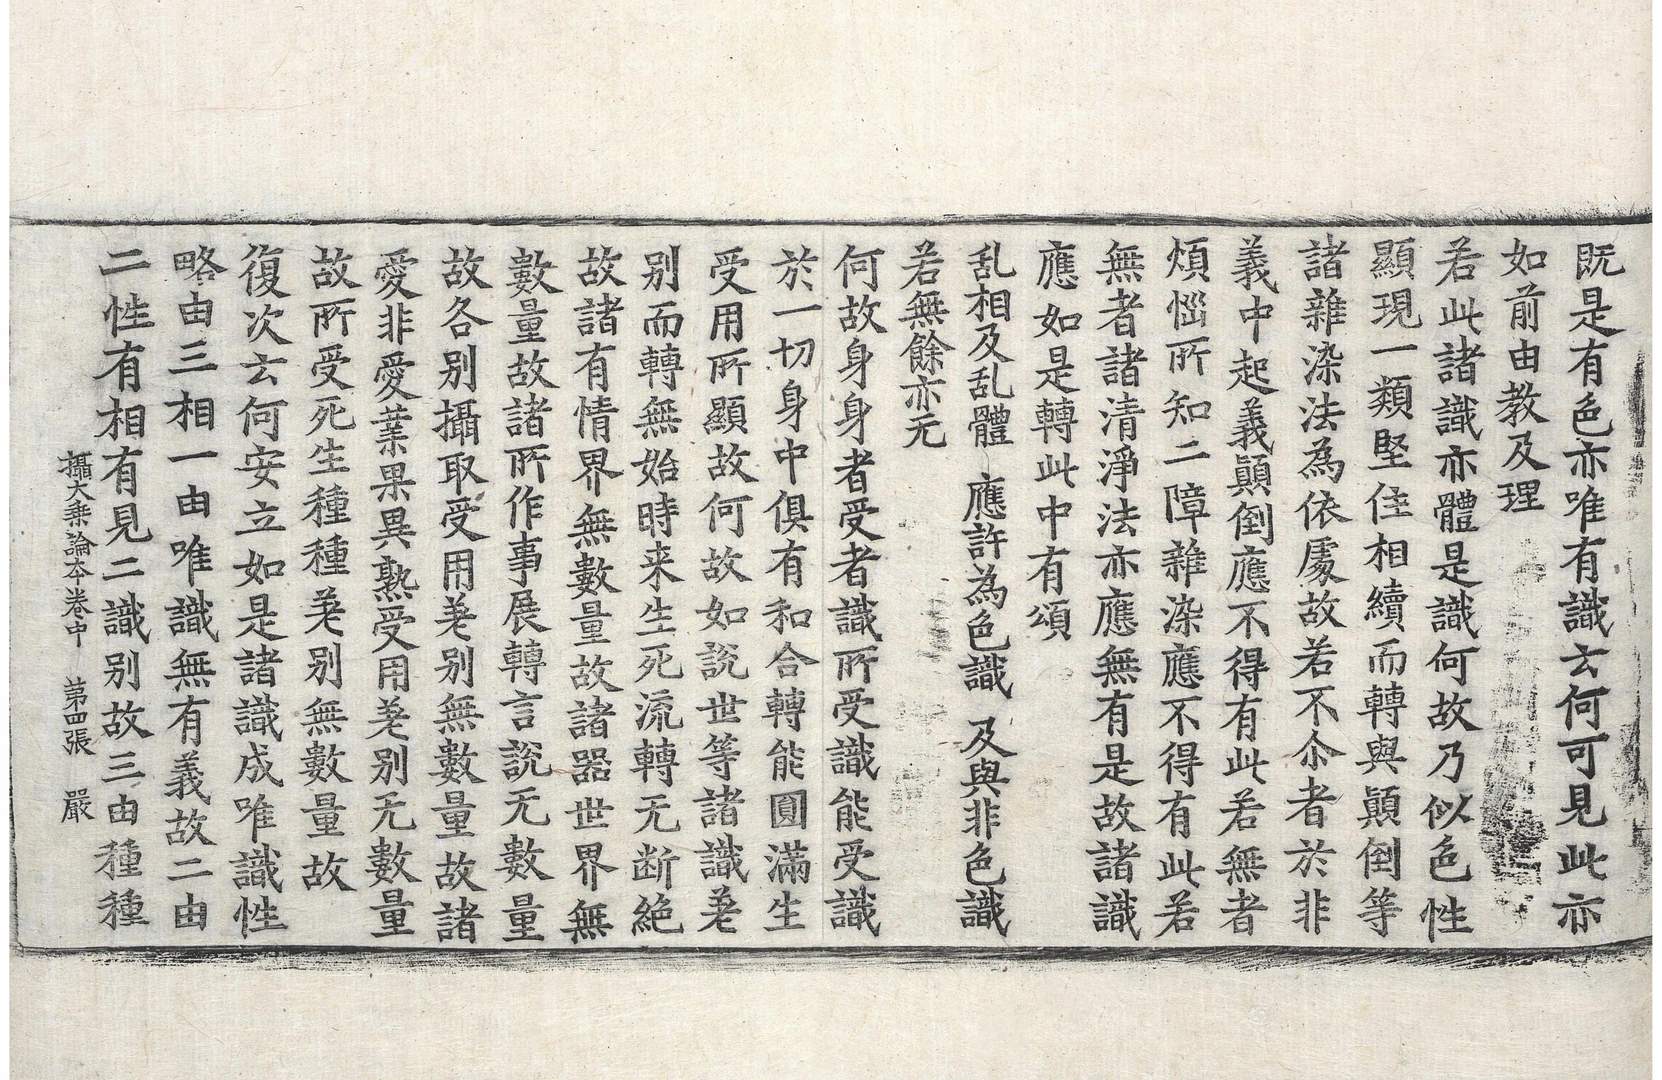 既是有色亦唯有識云何可見此亦
如前由教及理
若此諸識亦體是識何故乃似色性
顯現一類堅住相續而轉與顚倒等
諸雜染法為依處故若不尒者於非
義中起義顚倒應不得有此若無者
煩惱所知二障雜染應不得有此若
無者諸清淨法亦應無有是故諸識
應如是轉此中有頌
乱相及乱體　應許為色識　及與非色識
若無餘亦无
何故身身者受者識所受識能受識
於一切身中俱有和合轉能圓滿生
受用所顯故何故如說世等諸識差
别而轉無始時来生死流轉无断絶
故諸有情界無數量故諸器世界無
數量故諸所作事展轉言說无數量
故各别攝取受用差别無數量故諸
愛非愛業果異熟受用差别无數量
故所受死生種種差别無數量故
復次云何安立如是諸識成唯識性
略由三相一由唯識無有義故二由
二性有相有見二識别故三由種種
攝大乗論本卷中　第四張　嚴